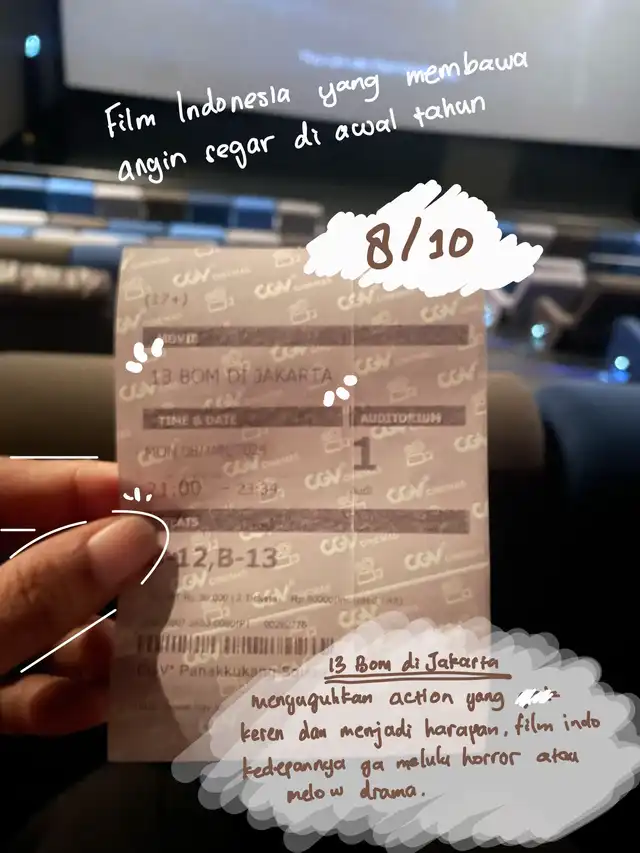 Film Indonesia yang membawa
angin segar di awal tahun
8/10
CGV CINEMAS
(17+)
MOVIE
13 BOM DI JAKARTA
TIME & DATE
AUDITORIUM
MON
1
21:00
B-13
CGV* Panakkukang
13 Bom di Jakarta
menyuguhkan action yang
keren dan menjadi harapan, film indo
kedepannya ga melulu horror atau
melow drama.